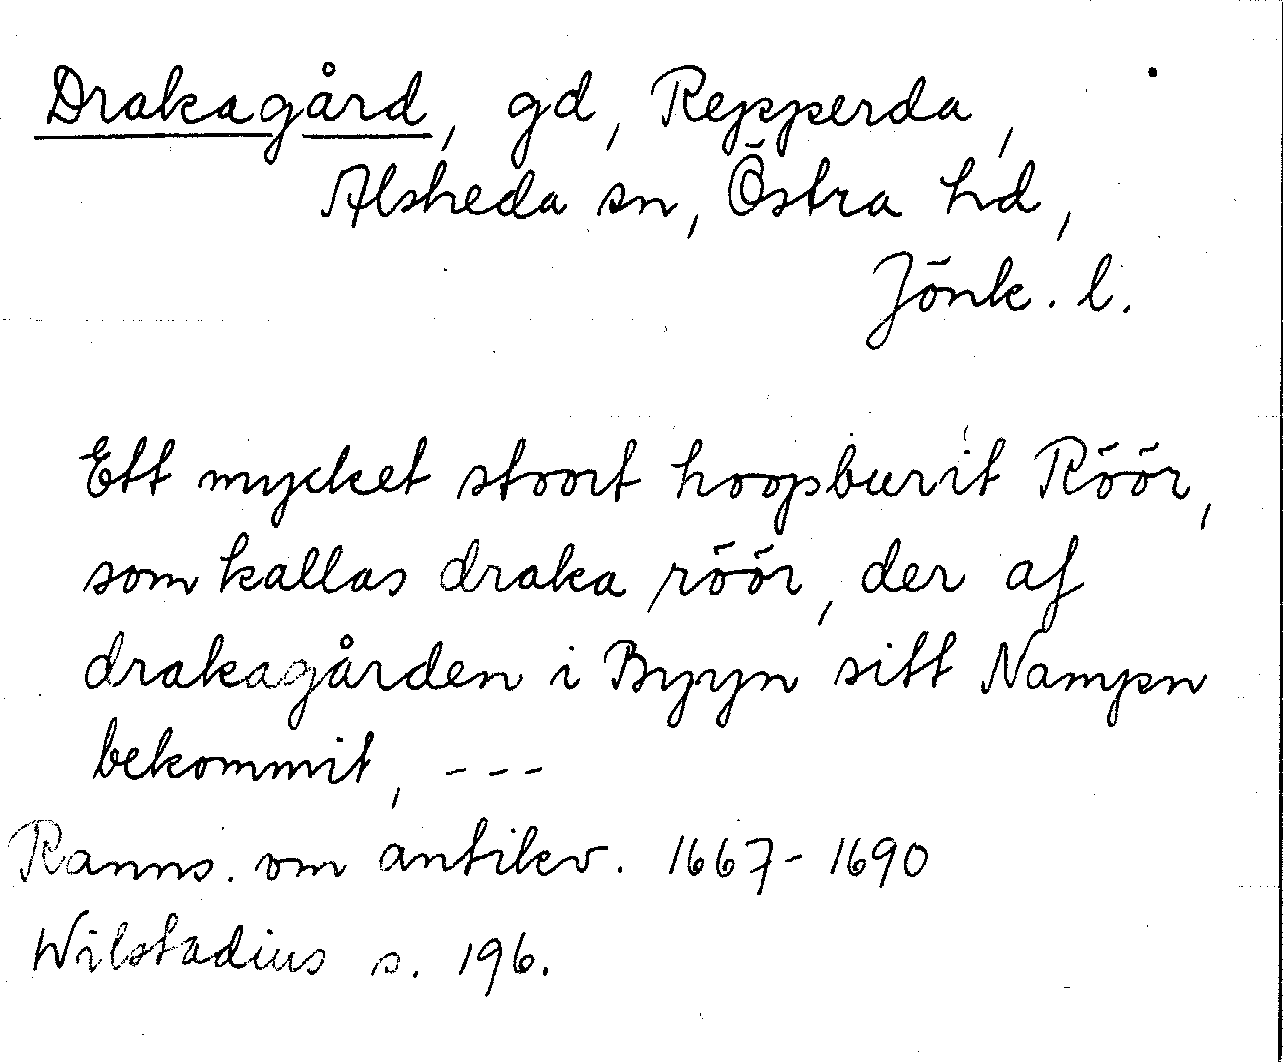 Drakagård, gd, Repperda,
Alsheda sn, Östra hd,
Jönk. l.
Ett mycket stoort hoopburit Röör,
som kallas draka röör, der af
drakagården i Byyn sitt Nampn
bekommit, ---
Ranns. om antikv. 1667-1690
Wilstadius s. 196.